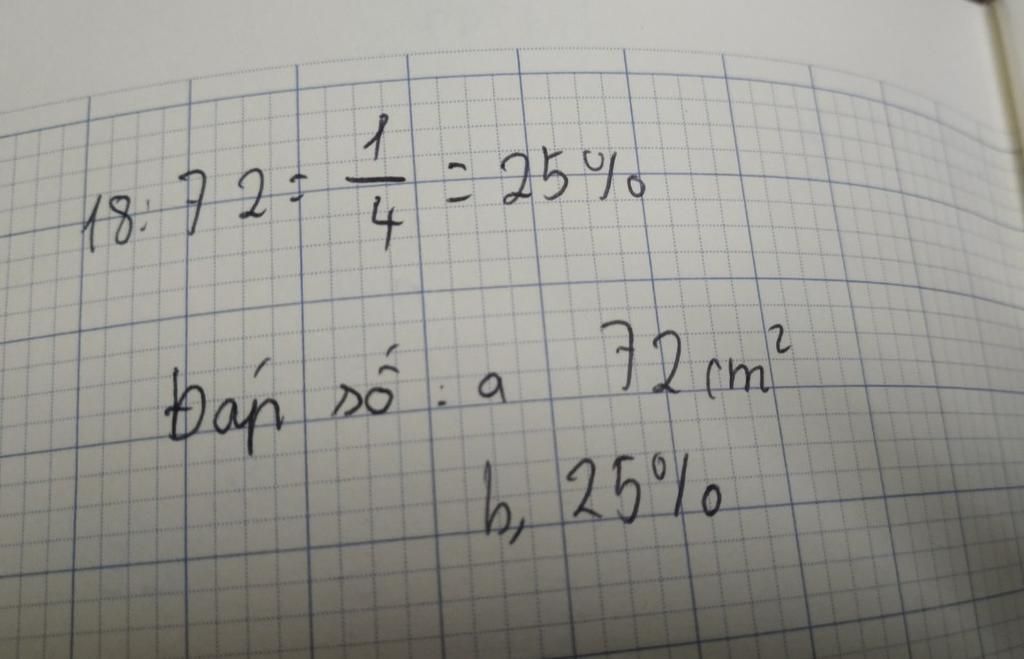 18: 72 = 1/4 = 25%
Đáp số : a 72 cm²
b, 25%